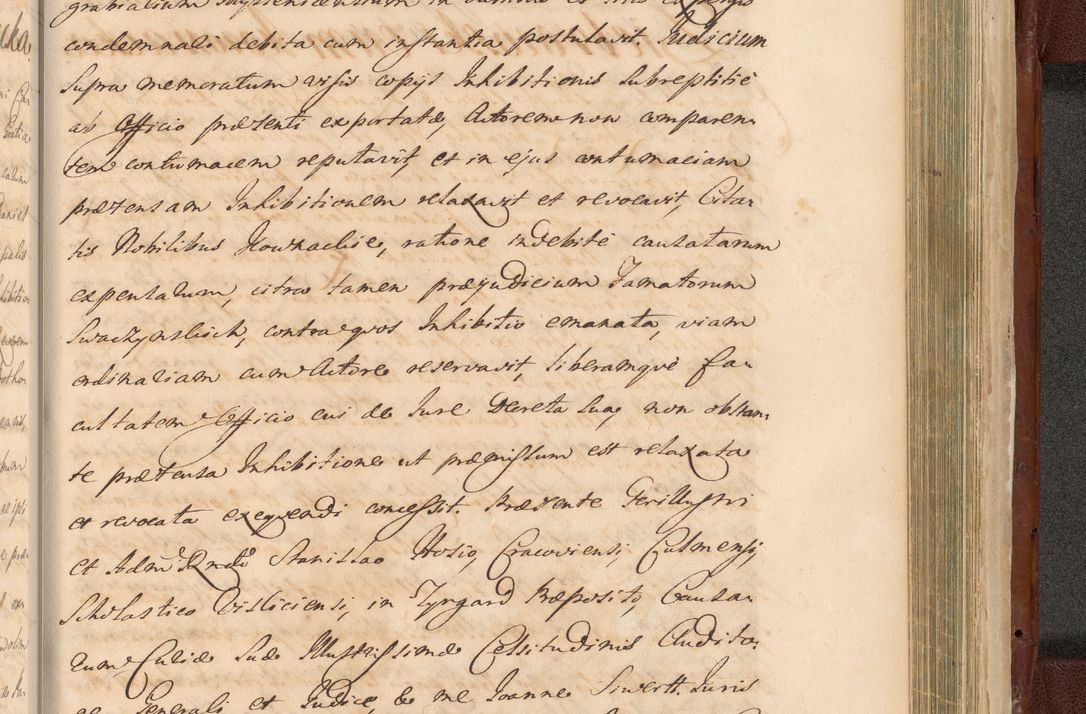 condemnali debita cum instantia postulavit. Judicium
supra memoratum visis copijs Inhibitionis subreptitiè
ab Officio præsenti exportatæ, Actorem non comparen-
tem contumacem reputavit, et in ejus contumaciam
prætensam Inhibitionem relaxavit et revocavit, Cita-
tis Nobilibus ratione indebitè causatarum
expensarum, citra tamen præjudicium Famatorum
contra quos Inhibitio emanata, viam
ordinariam cum Actore reservavit, liberamque fa-
cultatem Officio cui de Jure Decreta sua, non obstan-
te prætensa Inhibitione ut præmissum est relaxata
et revocata exequendi concessit. Præsente Perillustri
et Adm Rndo Stanislao Hosio, Cracoviensi, Culmensi,
Scholastico Visliciensi, in Tyrgard Præposito, Causa-
rum Curiæ Suæ Illustrissimæ Celsitudinis Audito-
re Generali et Judice, & me Joanne Siwertt Juris